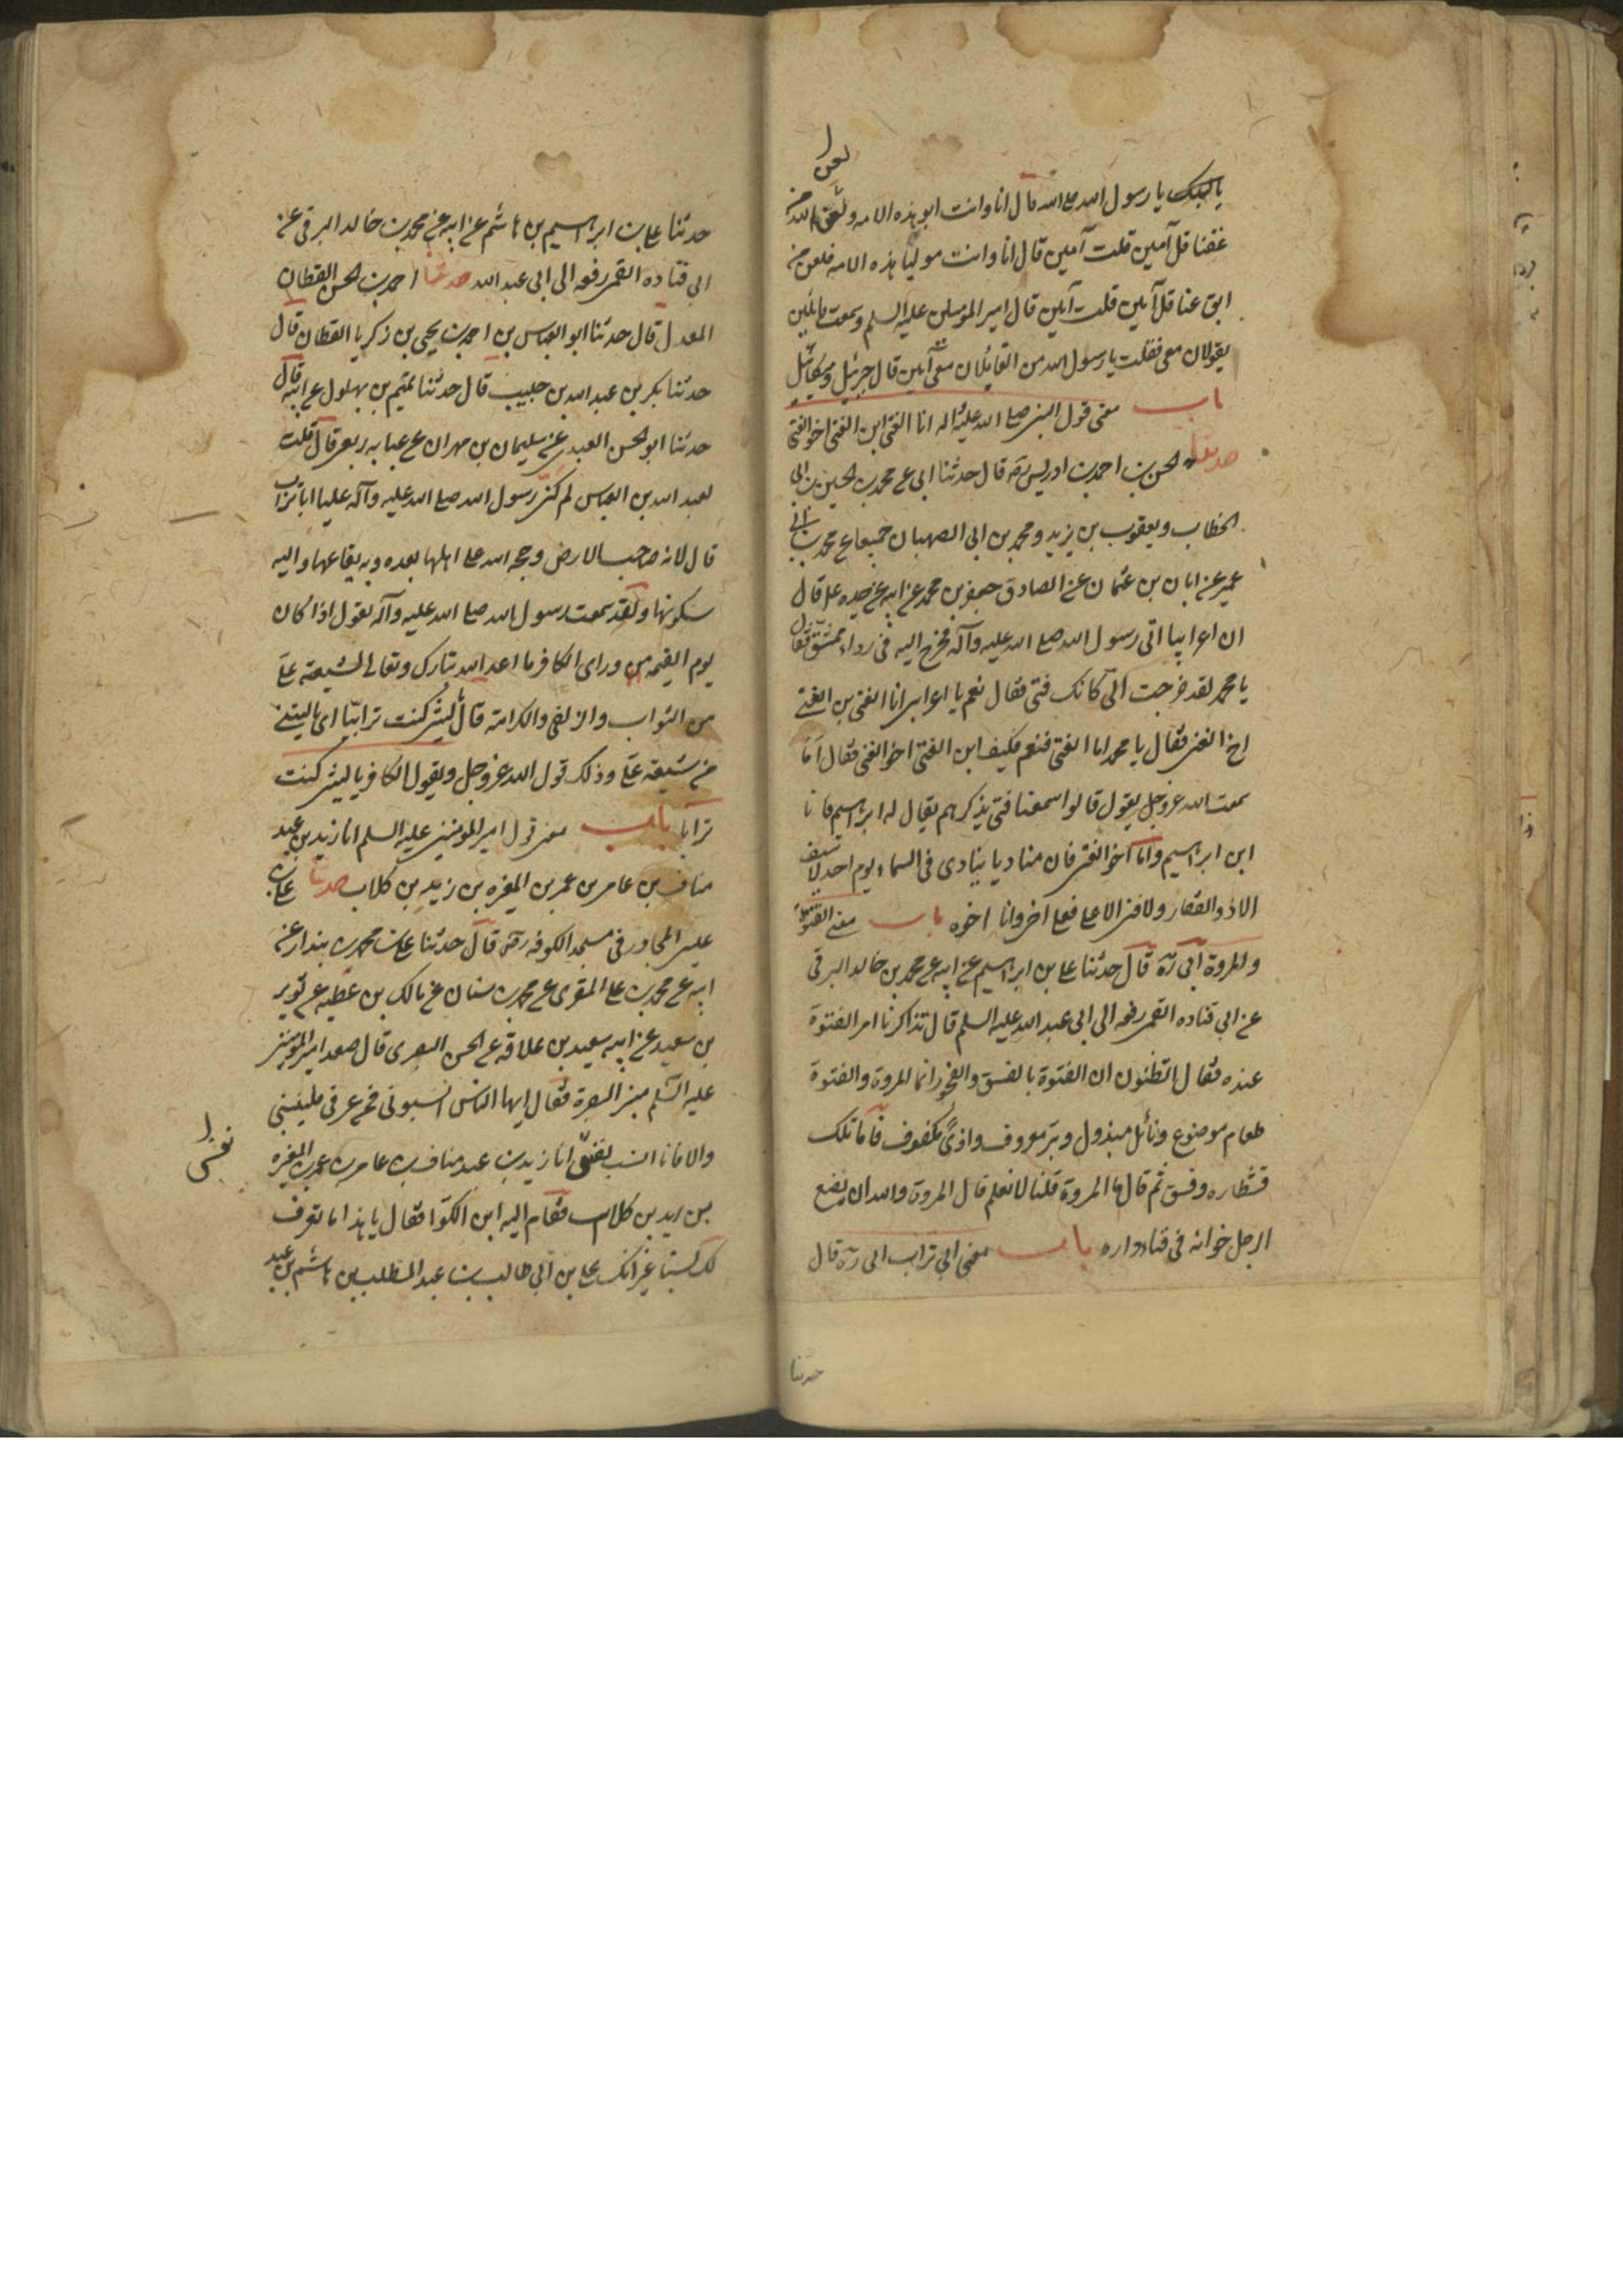 لعن
يا لبيك يا رسول الله صلى الله قال انا وانت ابو هذه الامه ولعن الله من
عقنا قل آمين قلت آمين قال انا وانت موليا هذه الامه فلعن من
ابق عنا قل آمين قلت آمين قال امير المومنين عليه السلم وسمعت قائلين
يقولان معى فقلت يا رسول الله من القائلان معى آمين قال جبرئيل وميكائيل
باب معنى قول النبى صلى الله عليه واله انا الفتى ابن الفتى اخو الفتى
حدثنا الحسن بن احمد بن ادريس رة قال حدثنا ابى عن محمد بن الحسين بن ابى
الخطاب ويعقوب بن يزيد ومحمد بن ابى الصهبان جميعا عن محمد بن ابى
عمير عن ابان بن عثمان عن الصادق جعفر بن محمد عن ابيه عن جده ع قال
ان اعرابيا اتى رسول الله صلى الله عليه وآله فخرج اليه فى رداء ممشق فقال
يا محمد لقد خرجت الى كانك فتى فقال نعم يا اعرابى انا الفتى بن الفتى
اخ الفتى فقال يا محمد اما الفتى فنعم فكيف ابن الفتى اخو الفتى فقال اما
سمعت الله عز وجل يقول قالوا سمعنا فتى يذكرهم يقال له ابراهيم فانا
ابن ابراهيم واما اخو الفتى فان مناديا ينادى فى السماء يوم احد لا سيف
الا ذو الفقار ولا فتى الا على فعلى اخى وانا اخوه باب معنى الفتوة
والمروة ابى رة قال حدثنا على بن ابراهيم عن ابيه عن محمد بن خالد البرقى
عن ابى قتاده القمى رفعه الى ابى عبد الله عليه السلم قال تذاكرنا امر الفتوة
عنده فقال اتظنون ان الفتوة بالفسق والفجور انما المروة والفتوة
طعام موضوع ونائل مبذول وبر معروف واذى مكفوف فاما تلك
فشطاره وفسق ثم قال ما المروة قلنا لا نعلم قال المروة والله ان يضع
الرجل خوانه فى فناء داره باب معنى ابى تراب ابى رة قال
حدثنا
حدثنا على بن ابراهيم بن هاشم عن ابيه عن محمد بن خالد البرقى عن
ابى قتاده القمى رفعه الى ابى عبد الله حدثنا احمد بن الحسن القطان
المعدل قال حدثنا ابو العباس بن احمد بن يحيى بن زكريا القطان قال
حدثنا بكر بن عبد الله بن حبيب قال حدثنا تميم بن بهلول عن ابيه قال
حدثنا ابو الحسن العبدى عن سليمان بن مهران عن عبايه بن ربعى قال قلت
لعبد الله بن العباس لم كنى رسول الله صلى الله عليه وآله عليا ابا تراب
قال لانه صاحب الارض وحجه الله على اهلها بعده وبه بقاءها واليه
سكونها ولقد سمعت رسول الله صلى الله عليه وآله يقول اذا كان
يوم القيمه من وراى الكافر ما اعد الله تبارك وتعالى لشيعة على
من الثواب والزلفى والكرامة قال ليتنى كنت ترابيا اى ياليتنى
من شيعة على وذلك قول الله عز وجل ويقول الكافر ياليتنى كنت
ترابا باب معنى قول امير المومنين عليه السلم انا زيد بن عبد
مناف بن عامر بن عمر بن المغيره بن زيد بن كلاب حدثنا على بن
عيسى المجاور فى مسجد الكوفه رة قال حدثنا على بن محمد بن بندار عن
ابيه عن محمد بن على المقرى عن محمد بن سنان عن مالك بن عطيه عن ثوير
بن سعيد عن ابيه سعيد بن علاقة عن الحسن البصرى قال صعد امير المومنين
عليه السلم منبر البصرة فقال ايها الناس انسبونى فمن عرفنى فلينسبنى
والا فانا انسب نفسى انا زيد بن عبد مناف بن عامر بن عمرو بن المغيره
نفسى
بن زيد بن كلاب فقام اليه ابن الكوا فقال يا هذا ما نعرف
لك نسبا غير انك على بن ابى طالب بن عبد المطلب بن هاشم بن عبد